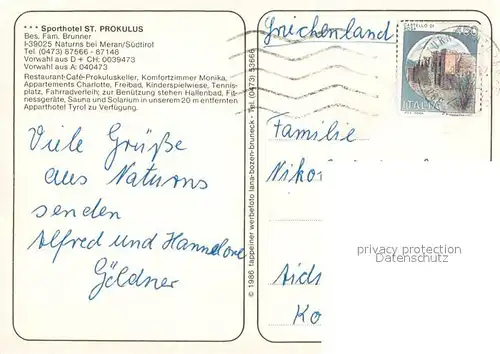 *** Sporthotel ST. PROKULUS
Bes. Fam. Brunner
I-39025 Naturns bei Meran/Südtirol
Tel. (0473) 87566 - 87148
Vorwahl aus D + CH: 0039473
Vorwahl aus A: 040473
Restaurant-Café-Prokuluskeller, Komfortzimmer Monika,
Appartements Charlotte, Freibad, Kinderspielwiese, Tennis-
platz, Fahrradverleih; zur Benützung stehen Hallenbad, Fit-
nessgeräte, Sauna und Solarium in unserem 20 m entfernten
Apparthotel Tyrol zu Verfügung.
Viele Grüße
aus Naturns
senden
Alfred und Hannelore
Göldner
© 1986 tappeiner werbefoto lana-bozen-bruneck - Tel. (0473) 53666
Griechenland
CASTELLO DI
450
ITALIA
Familie
Niko
Aids
Ko
privacy protection
Datenschutz